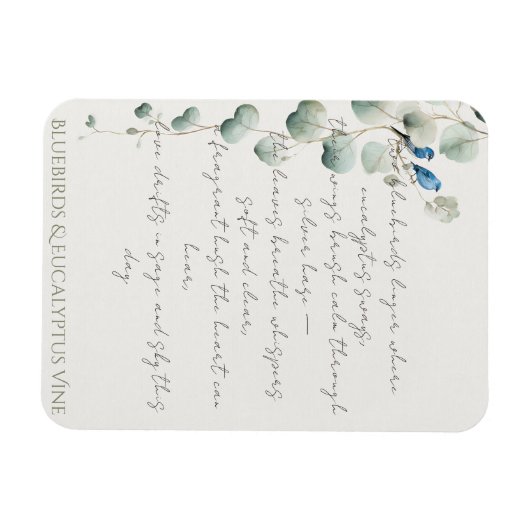 two bluebirds linger where
eucalyptus sways,
their wings brush calm through
silver haze —
the leaves breathe whispers
soft and clear,
a fragrant hush the heart can
hear,
love drifts in sage and sky this
day.
BLUEBIRDS & EUCALYPTUS VINE